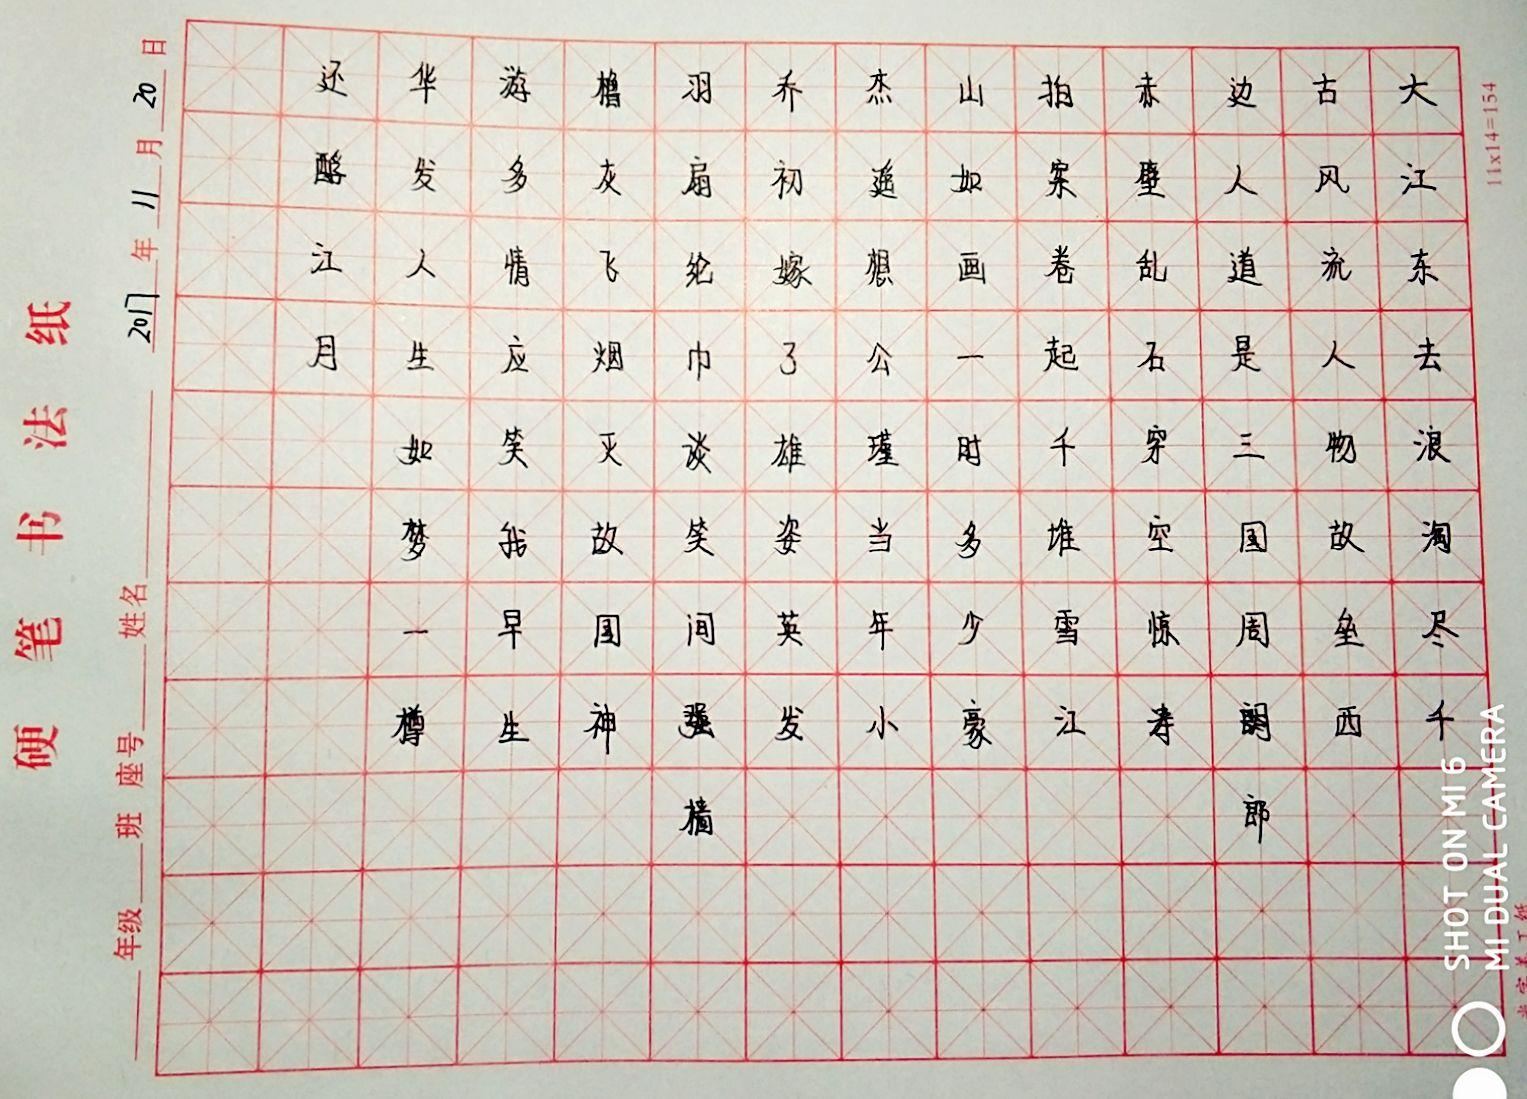 硬笔书法纸
年级 班 座号 姓名 2017年11月20日
11x14=154
大江东去浪淘尽千
古风流人物故垒西
边人道是三国周郎
赤壁乱石穿空惊涛
拍案卷起千堆雪江
山如画一时多少豪
杰遥想公瑾当年小
乔初嫁了雄姿英发
羽扇纶巾谈笑间强樯
橹灰飞烟灭故国神
游多情应笑我早生
华发人生如梦一樽
还酹江月
SHOT ON MI 6
MI DUAL CAMERA